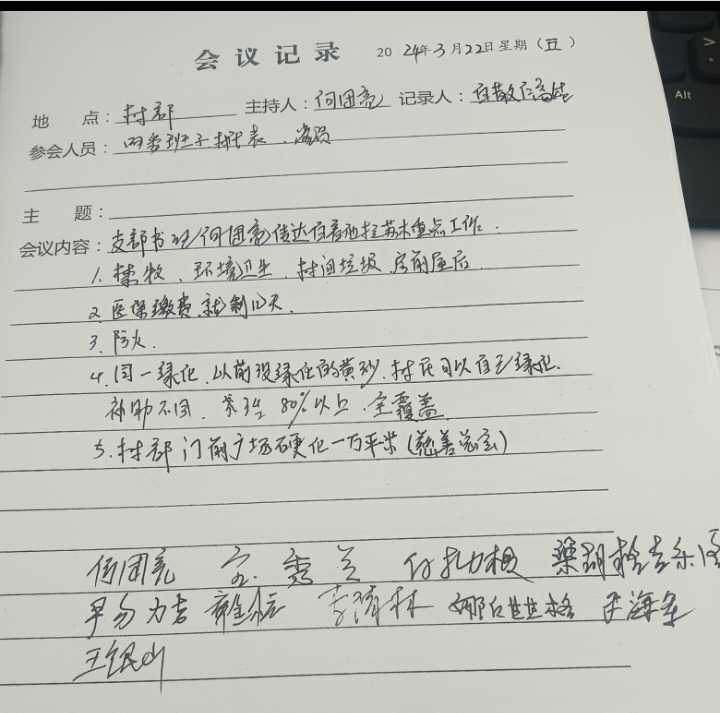 会议记录 2024年3月22日 星期（五）
地 点：村部 主持人：何团亮 记录人：
参会人员：两委班子.村代表、党员
主 题：
会议内容：支部书记何团亮传达 苏木重点工作.
1. 禁牧、环境卫生、村间垃圾、房前屋后
2. 医保缴费,就剩10天.
3. 防火.
4. 同一绿化.以前没绿化的黄砂,村民可以自己绿化.
补助不同. 80%以上.全覆盖
5. 村部门前广场硬化一万平米(慈善总会)
何团亮 秀兰
李清林 娜仁其其格
王银山
Alt